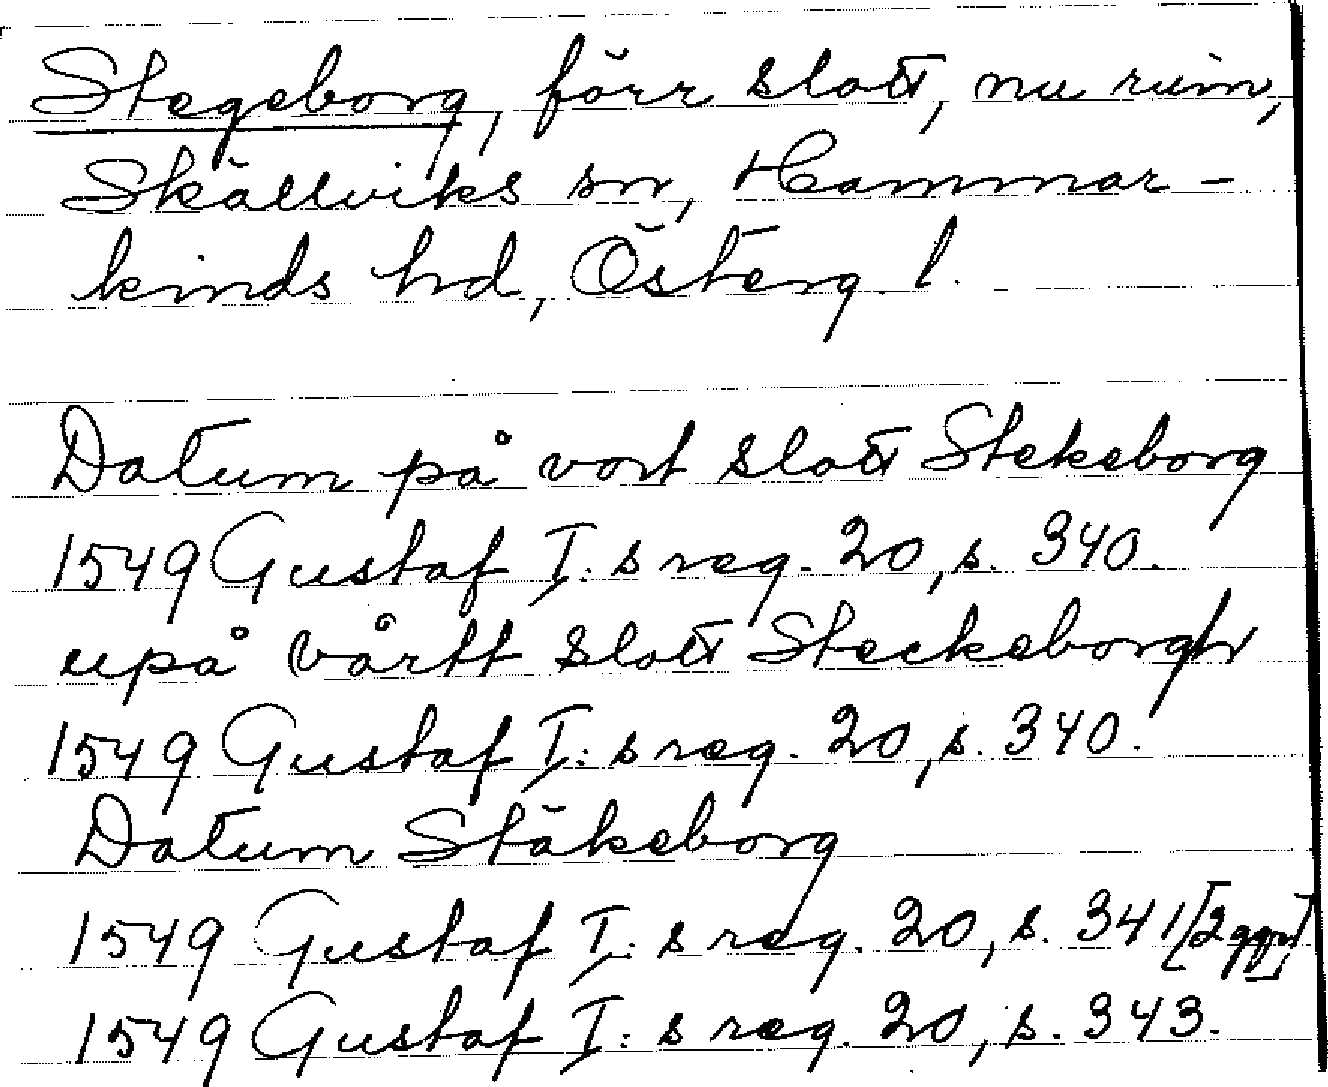 Stegeborg, förr slott, nu ruin,
Skällviks sn, Hammar-
kinds hd, Österg. l.
Datum på vort slott Stekeborg
1549 Gustaf I:s reg. 20, s. 340.
upå vårtt slott Steckeborgh
1549 Gustaf I:s reg. 20, s. 340.
Datum Stäkeborg
1549 Gustaf I:s reg. 20, s. 341 [2 ggr]
1549 Gustaf I:s reg. 20, s. 343.